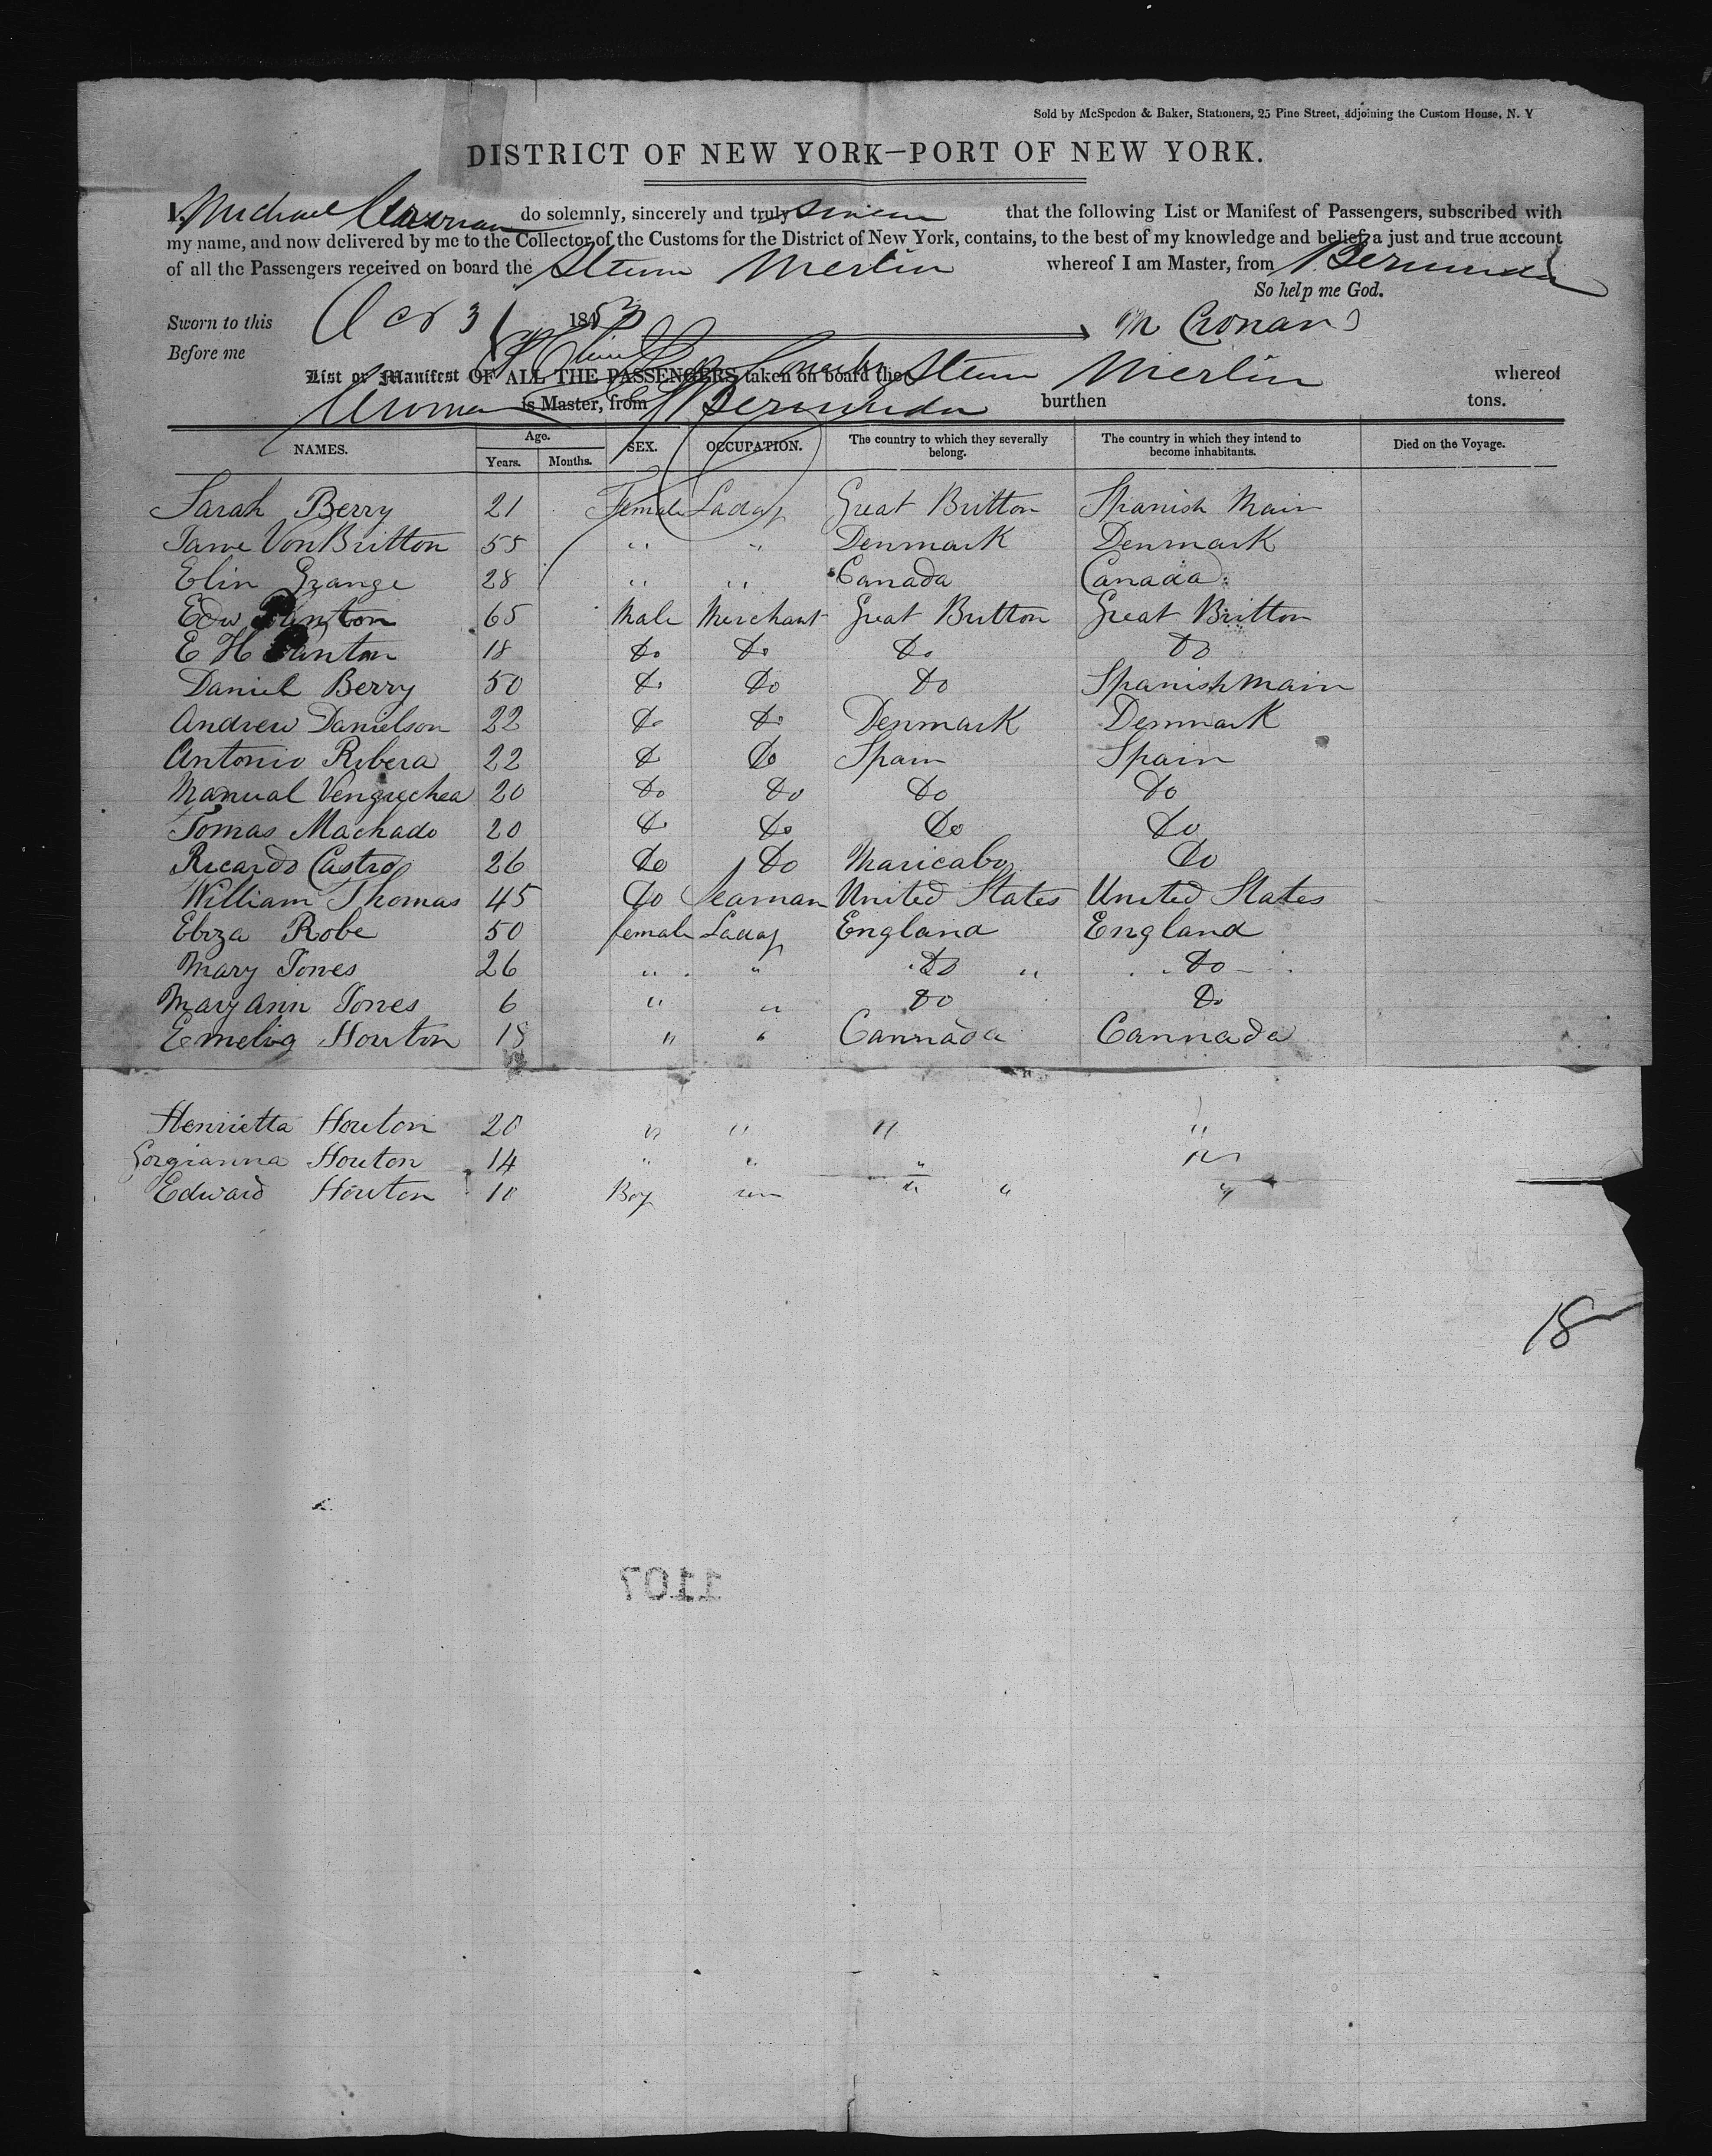 Sold by McSpedon & Baker, Stationers, 25 Pine Street, adjoining the Custom House, N. Y
DISTRICT OF NEW YORK—PORT OF NEW YORK.
I, Michael do solemnly, sincerely and truly swear that the following List or Manifest of Passengers, subscribed with
my name, and now delivered by me to the Collector of the Customs for the District of New York, contains, to the best of my knowledge and belief, a just and true account
of all the Passengers received on board the Steam Merlin whereof I am Master, from Bermuda
So help me God.
Sworn to this Oct 3 1853 M Cronan
Before me
List or Manifest OF ALL THE PASSENGERS taken on board the Steam Merlin whereof
Cronan is Master, from Bermuda burthen tons.
NAMES. Age. Years. Months. SEX. OCCUPATION. The country to which they severally belong. The country in which they intend to become inhabitants. Died on the Voyage.
Sarah Berry 21 Female Lady Great Britton Spanish Main
Jane Von Britton 55 " " Denmark Denmark
Elin Grange 28 " " Canada Canada
Edw 65 Male Merchant Great Britton Great Britton
E H 18 Do Do Do Do
Daniel Berry 50 Do Do Do Spanish Main
Andrew Danielson 22 Do Do Denmark Denmark
Antonio Ribera 22 Do Do Spain Spain
Manual Venguechea 20 Do Do Do Do
Tomas Machado 20 Do Do Do Do
Ricardo Castro 26 Do Do Maricabo Do
William Thomas 45 Do Seaman United States United States
Eliza Robe 50 female Lady England England
Mary Jones 26 " " Do " Do
Mary Ann Jones 6 " " Do Do
Emelia Houton 18 " " Cannada Cannada
Henrietta Houton 20 " " " "
Gorgianna Houton 14 " " " "
Edward Houton 10 Boy " " "
18
1107